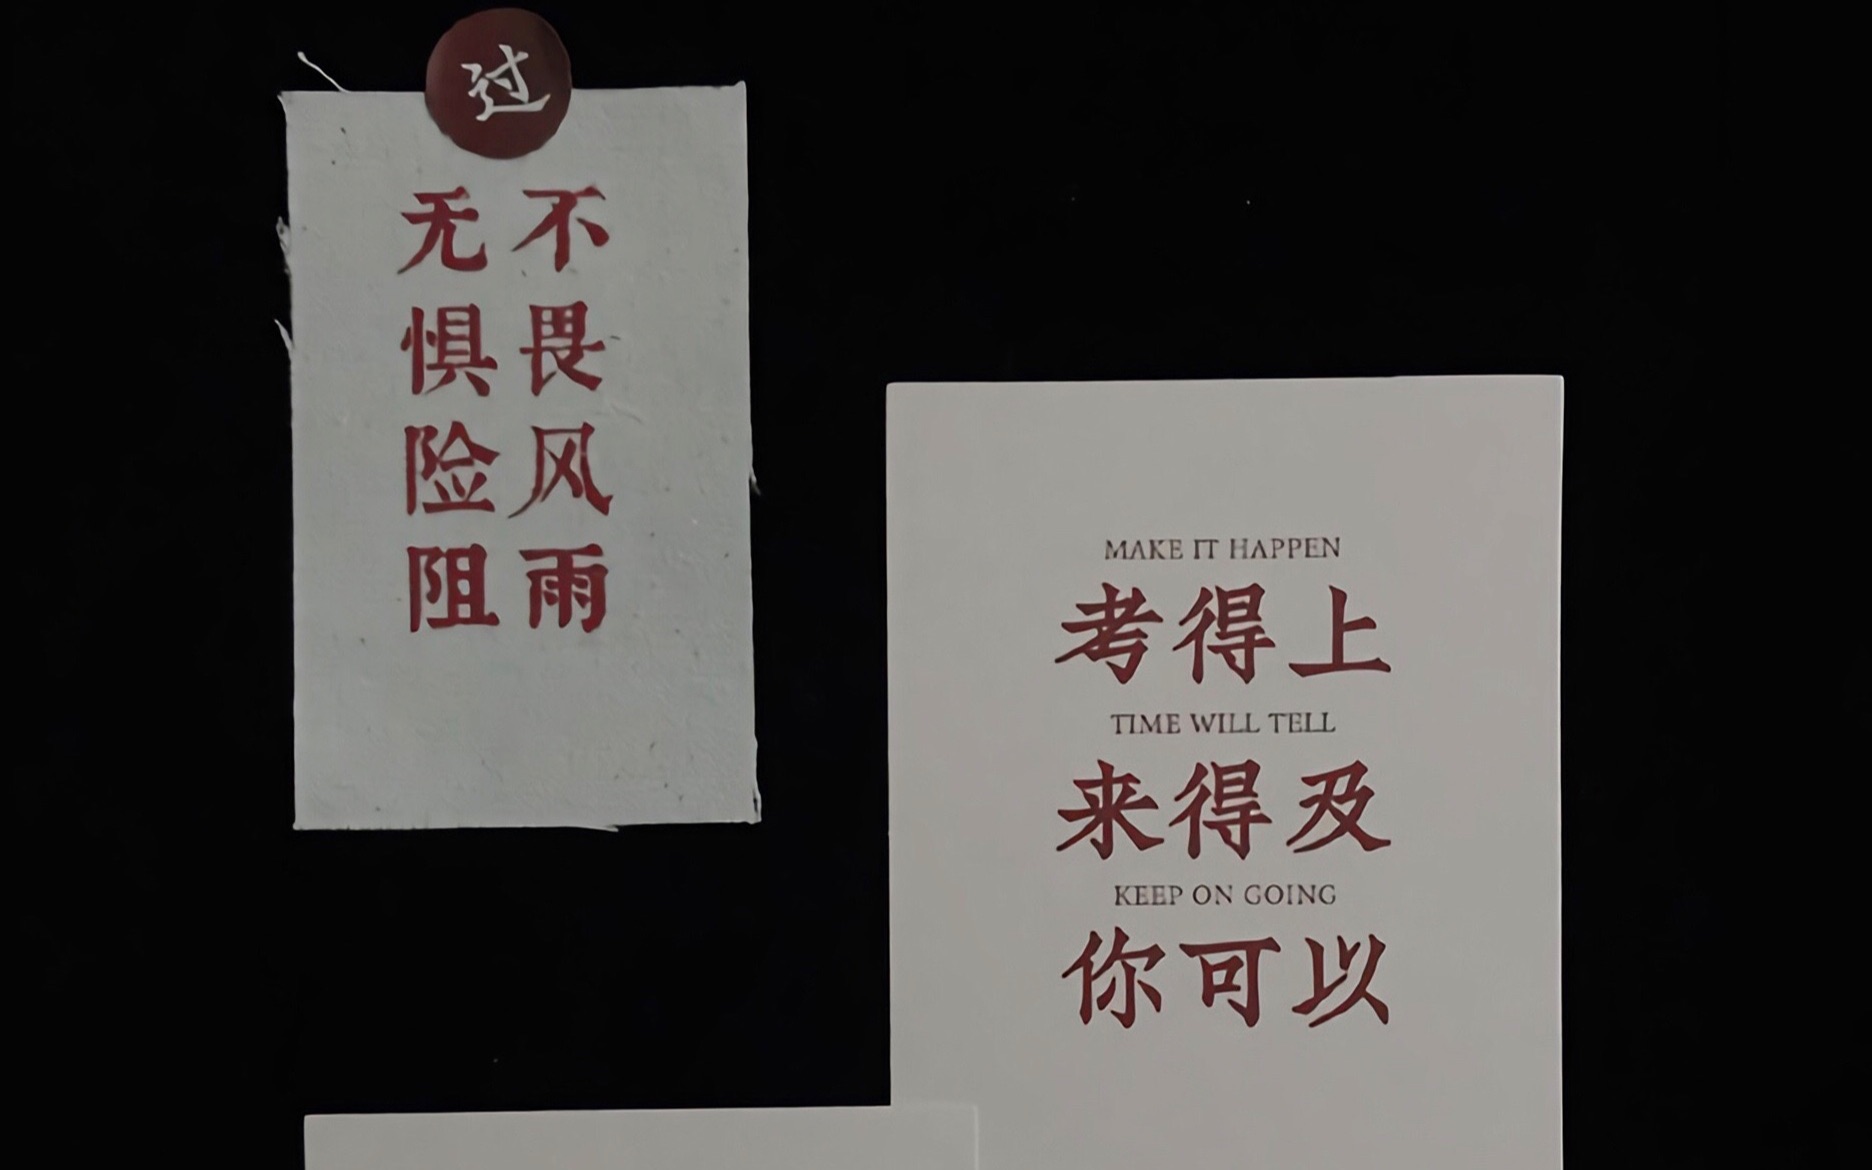 过
不畏风雨
无惧险阻
MAKE IT HAPPEN
考得上
TIME WILL TELL
来得及
KEEP ON GOING
你可以